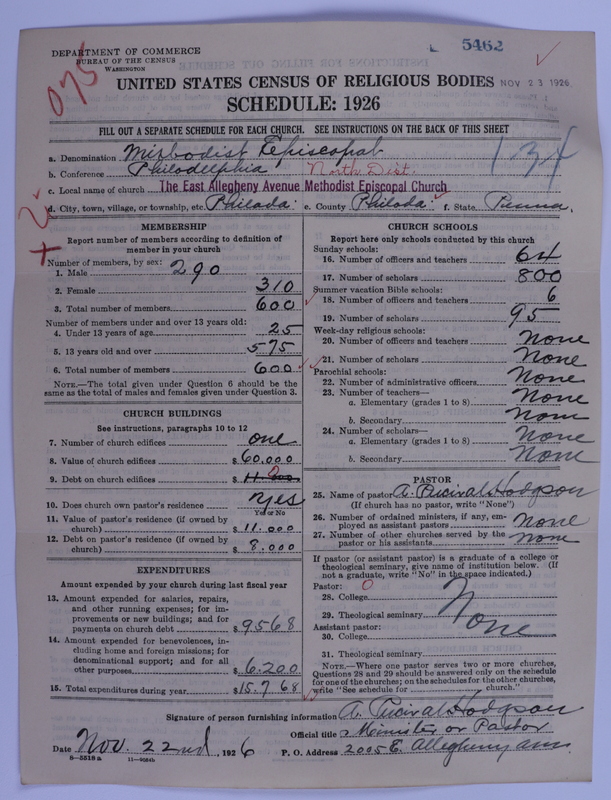 DEPARTMENT OF COMMERCE
BUREAU OF THE CENSUS
WASHINGTON
5462
075
UNITED STATES CENSUS OF RELIGIOUS BODIES
NOV 23 1926
SCHEDULE: 1926
FILL OUT A SEPARATE SCHEDULE FOR EACH CHURCH. SEE INSTRUCTIONS ON THE BACK OF THIS SHEET
a. Denomination Methodist Episcopal
134
b. Conference Philadelphia North Dist.
c. Local name of church The East Allegheny Avenue Methodist Episcopal Church
d. City, town, village, or township, etc. Philada. e. County Philada. f. State Penna.
MEMBERSHIP
Report number of members according to definition of member in your church
Number of members, by sex:
1. Male 290
2. Female 310
3. Total number of members 600
Number of members under and over 13 years old:
4. Under 13 years of age 25
5. 13 years old and over 575
6. Total number of members 600
NOTE.—The total given under Question 6 should be the
same as the total of males and females given under Question 3.
CHURCH BUILDINGS
See instructions, paragraphs 10 to 12
7. Number of church edifices one
8. Value of church edifices $ 60.000
9. Debt on church edifices $ 11.000 0
10. Does church own pastor's residence yes
Yes or No
11. Value of pastor's residence (if owned by
church) $ 11.000
12. Debt on pastor's residence (if owned by
church) $ 8.000
EXPENDITURES
Amount expended by your church during last fiscal year
13. Amount expended for salaries, repairs,
and other running expenses; for im-
provements or new buildings; and for
payments on church debt $ 9568
14. Amount expended for benevolences, in-
cluding home and foreign missions; for
denominational support; and for all
other purposes $ 6.200
15. Total expenditures during year $ 15.768
CHURCH SCHOOLS
Report here only schools conducted by this church
Sunday schools:
16. Number of officers and teachers 64
17. Number of scholars 800
Summer vacation Bible schools:
18. Number of officers and teachers 6
19. Number of scholars 95
Week-day religious schools:
20. Number of officers and teachers None
21. Number of scholars None
Parochial schools:
22. Number of administrative officers None
23. Number of teachers—
a. Elementary (grades 1 to 8) None
b. Secondary None
24. Number of scholars—
a. Elementary (grades 1 to 8) None
b. Secondary None
PASTOR
25. Name of pastor A. Percival Hodgson
(If church has no pastor, write "None")
26. Number of ordained ministers, if any, em-
ployed as assistant pastors None
27. Number of other churches served by the
pastor or his assistants None
If pastor (or assistant pastor) is a graduate of a college or
theological seminary, give name of institution below. (If
not a graduate, write "No" in the space indicated.)
Pastor: 0
28. College
29. Theological seminary None
Assistant pastor:
30. College
31. Theological seminary
NOTE.—Where one pastor serves two or more churches,
Questions 28 and 29 should be answered only on the schedule
for one of the churches; on the schedules for the other churches,
write "See schedule for church."
Signature of person furnishing information A. Percival Hodgson
Official title Minister or Pastor
Date Nov. 22nd, 1926 P. O. Address 2005 E. Allegheny Ave.
8—5518 a